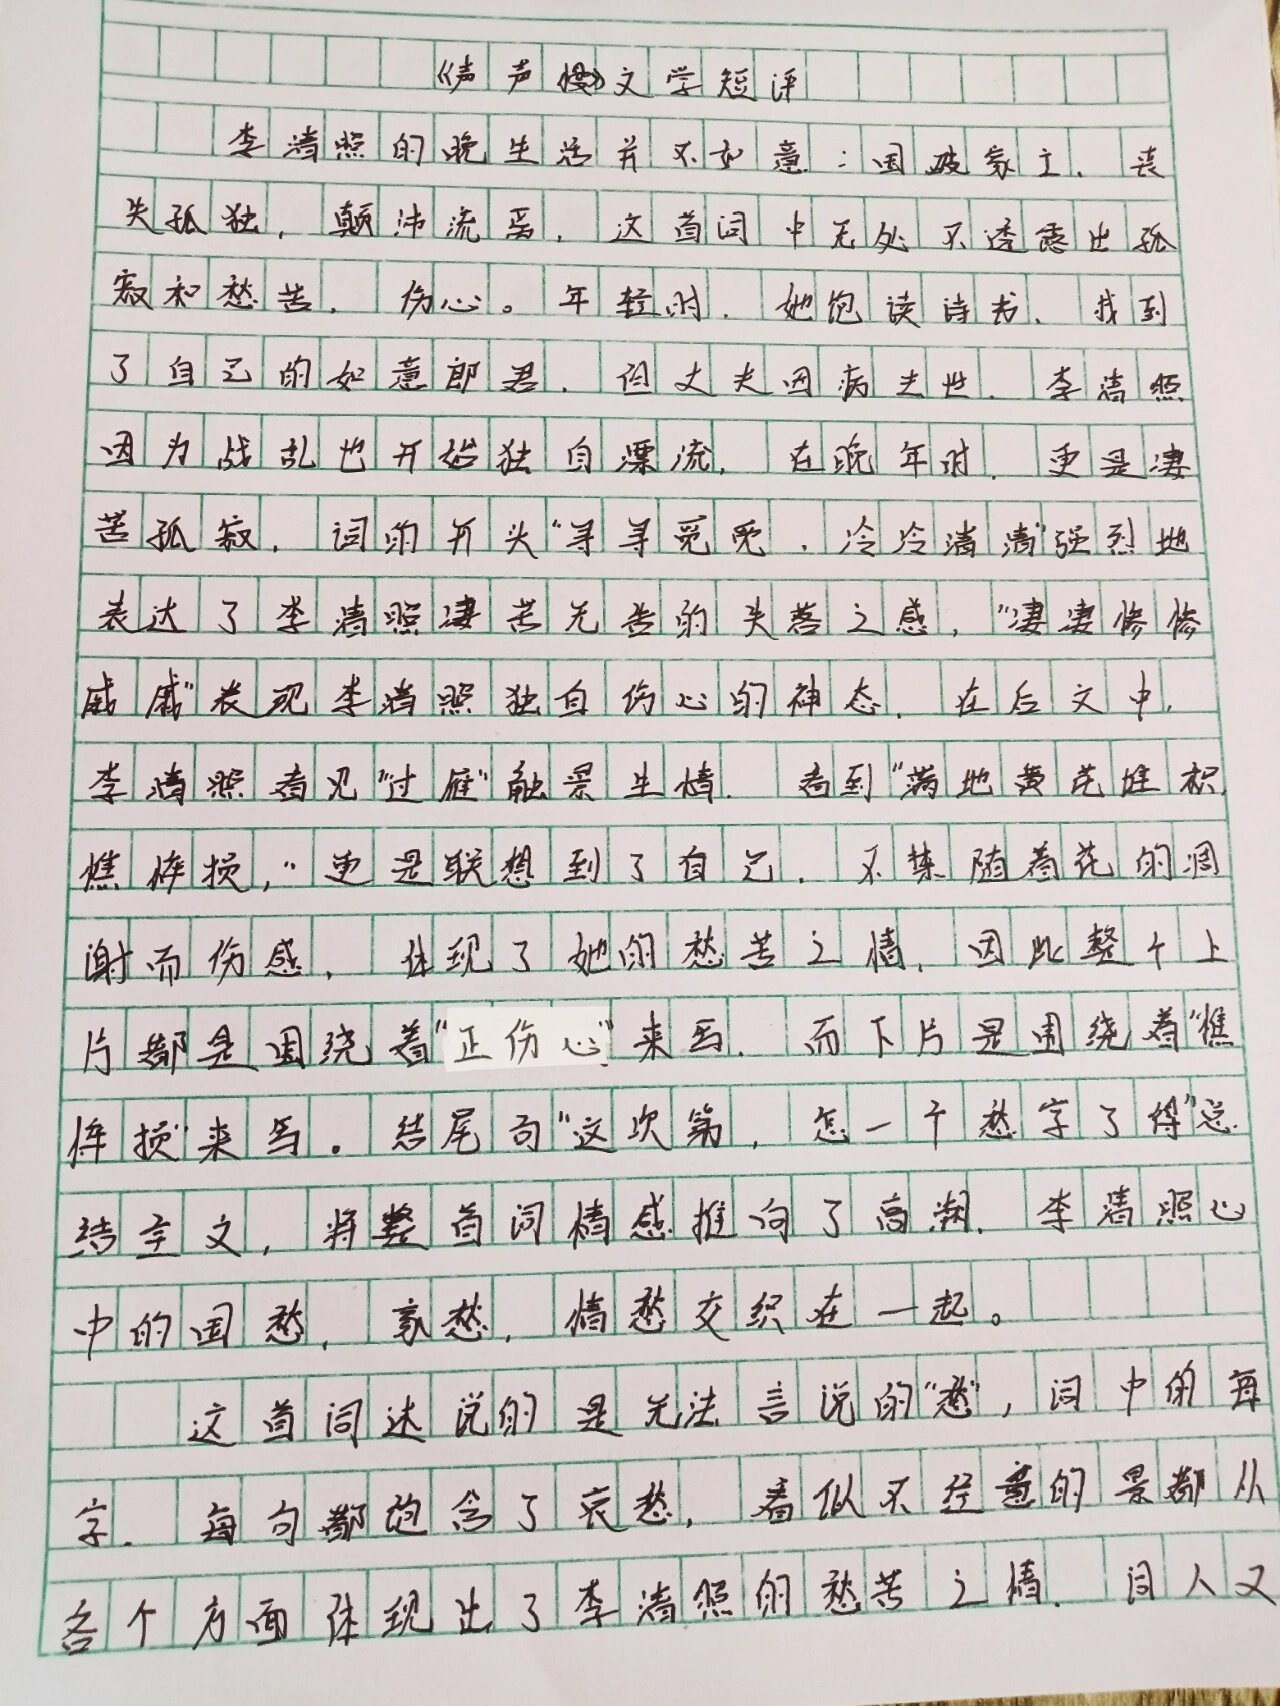 《声声慢》文学短评
李清照的晚生活并不如意：国破家亡、丧
失孤独，颠沛流离，这首词中无处不透露出孤
寂和愁苦、伤心。年轻时、她饱读诗书、找到
了自己的如意郎君、但丈夫因病去世、李清照
因为战乱也开始独自漂流、在晚年时、更是凄
苦孤寂、词的开头“寻寻觅觅、冷冷清清”强烈地
表达了李清照凄苦无告的失落之感，“凄凄惨惨
戚戚”表现李清照独自伤心的神态、在后文中、
李清照看见“过雁”触景生情、看到“满地黄花堆积，
憔悴损，”更是联想到了自己、不禁随着花的凋
谢而伤感、体现了她的愁苦之情、因此整个上
片都是围绕着“正伤心”来写、而下片是围绕着“憔
悴损”来写。结尾句“这次第，怎一个愁字了得”总
结全文，将整首词情感推向了高潮、李清照心
中的国愁、家愁，情愁交织在一起。
这首词述说的是无法言说的“愁”，词中的每
字、每句都饱含了哀愁，看似不经意的景都从
各个方面体现出了李清照的愁苦之情、词人又